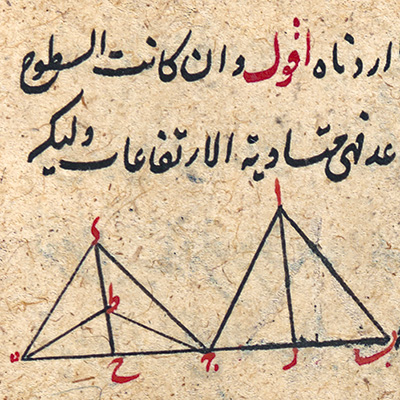 اردناه اقول وان كانت السطوح
فهى متساوية الارتفاعات وليكن
ا
د
ط
ح
ج
ر
ب